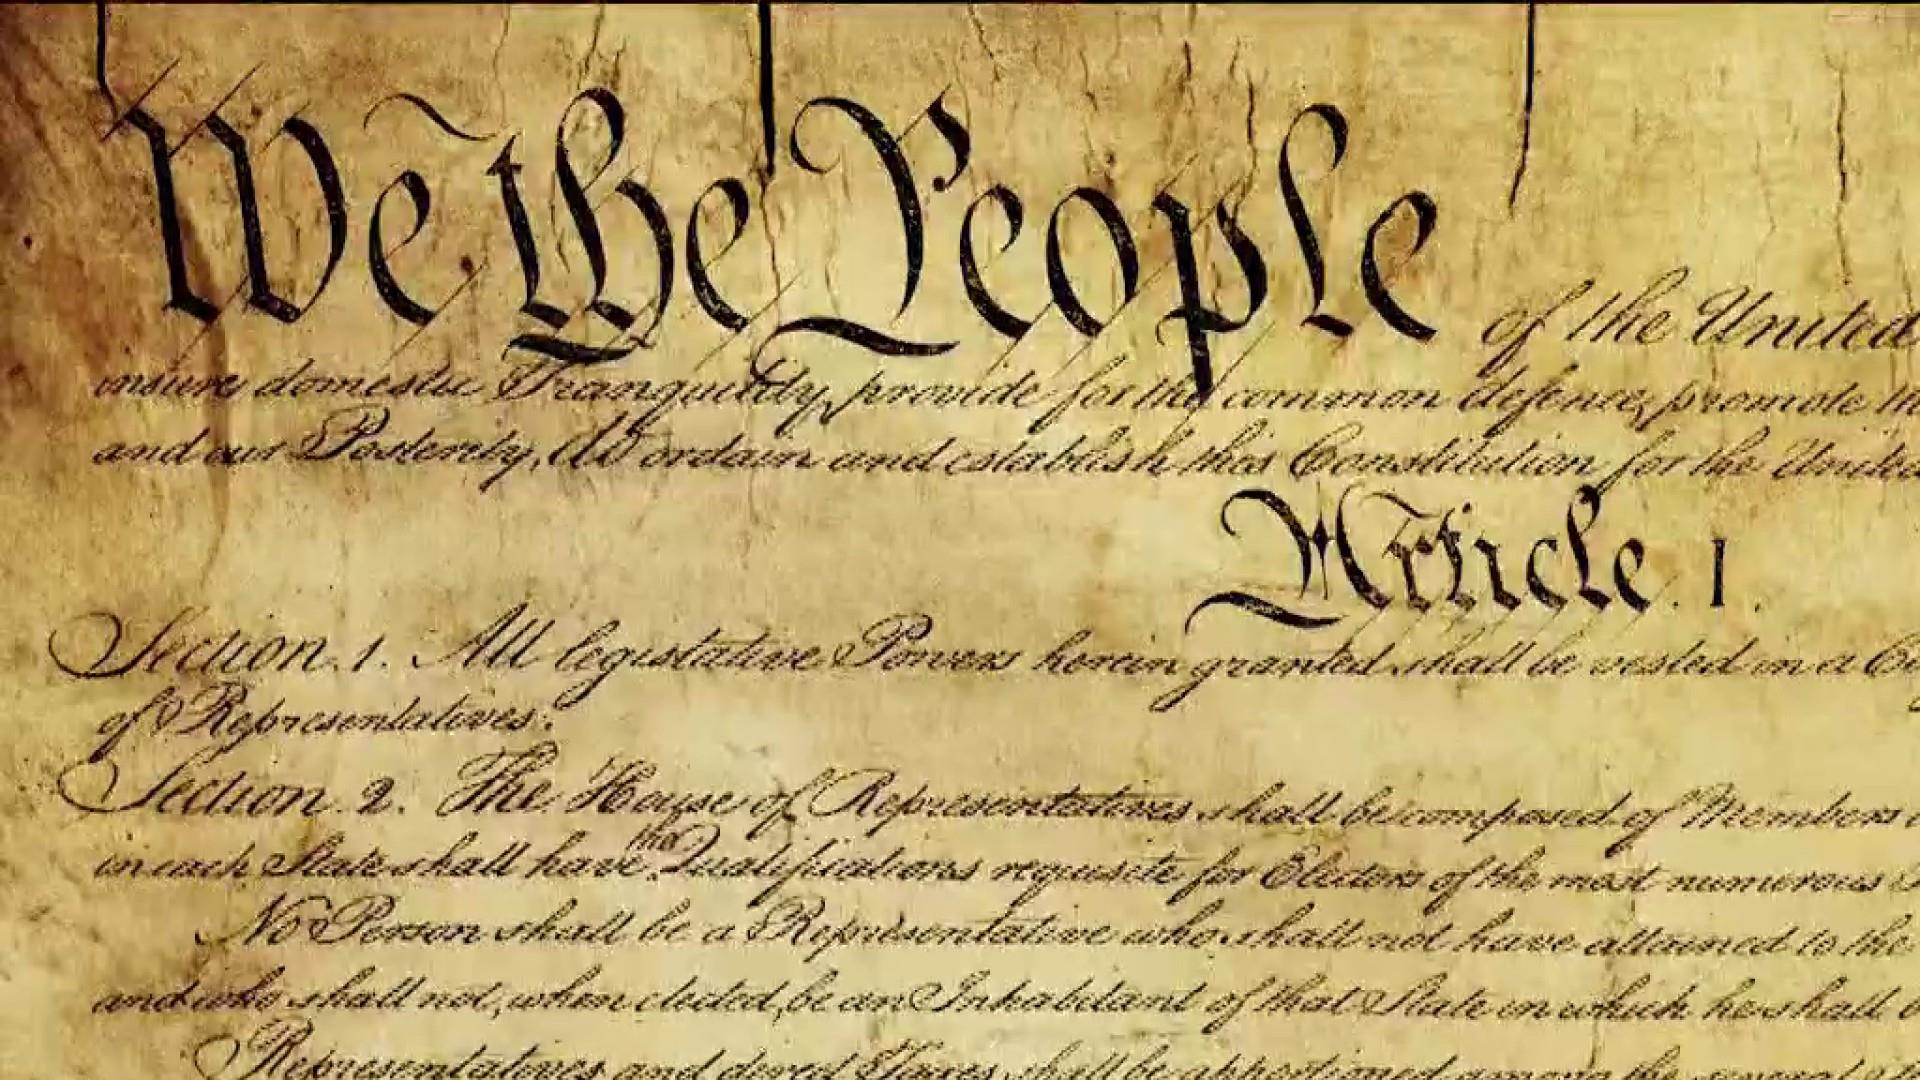 We the People of the United
insure domestic Tranquility, provide for the common defence, promote the
and our Posterity, do ordain and establish this Constitution for the United
Article. I.
Section. 1. All legislative Powers herein granted shall be vested in a
of Representatives.
Section. 2. The House of Representatives shall be composed of Members
the
in each State shall have Qualifications requisite for Electors of the most numerous
No Person shall be a Representative who shall not have attained to the
and who shall not, when elected, be an Inhabitant of that State in which he shall
Representatives and direct Taxes shall be apportioned among the several